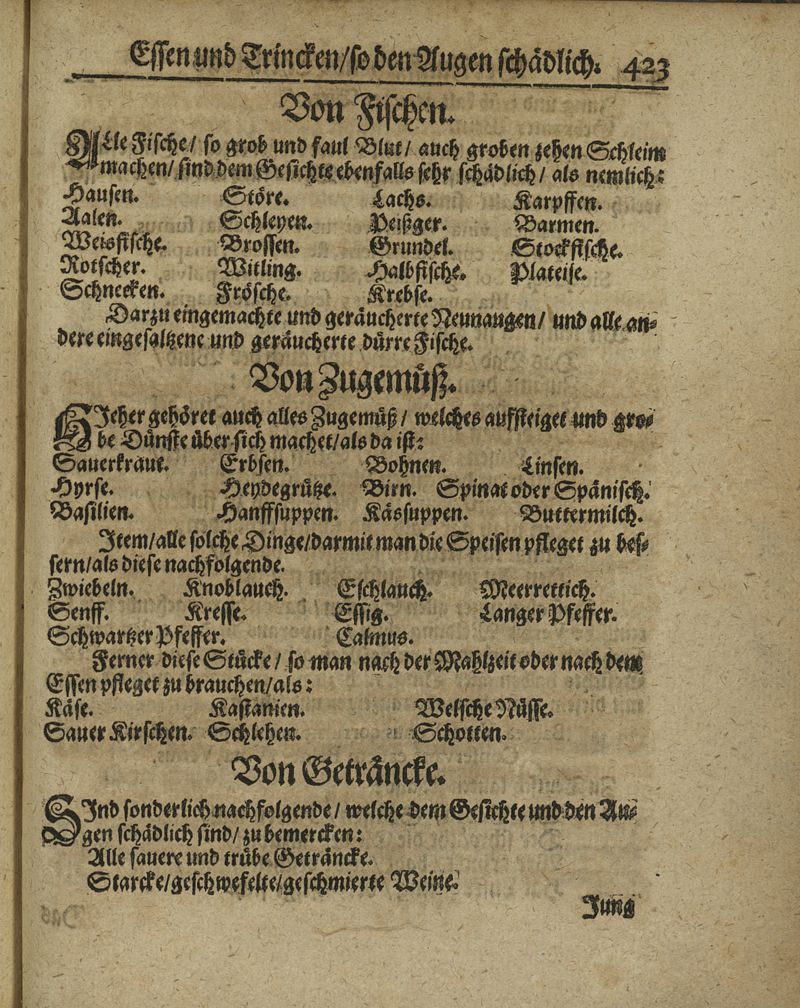 Essen und Trincken/ so den Augen schädlich. 423
Von Fischen.
ALle Fische/ so grob und faul Blut/ auch groben zehen Schleim
machen/ sind dem Gesichte ebenfalls sehr schädlich/ als nemlich:
Hausen. Störe. Lachs. Karpffen.
Aalen. Schleyen. Peißger. Barmen.
Weisfische. Brossen. Grundel. Stockfische.
Rotscher. Witling. Halbfische. Plateise.
Schnecken. Frösche. Krebse.
Darzu eingemachte und geräucherte Neunaugen/ und alle an-
dere eingesaltzene und geräucherte dürre Fische.
Von Zugemüß.
HIeher gehöret auch alles Zugemüß/ welches aufsteiget und gro-
be Dünste über sich machet/ als da ist:
Sauerkraut. Erbsen. Bohnen. Linsen.
Hyrse. Heydegrütze. Birn. Spinat oder Spänisch.
Basilien. Hanffsuppen. Kässuppen. Buttermilch.
Item/ alle solche Dinge/ darmit man die Speisen pfleget zu bes-
sern/ als diese nachfolgende.
Zwiebeln. Knoblauch. Eschlauch. Meerrettich.
Senff. Kresse. Essig. Langer Pfeffer.
Schwartzer Pfeffer. Calmus.
Ferner diese Stücke/ so man nach der Mahlzeit oder nach dem
Essen pfleget zu brauchen/ als:
Käse. Kastanien. Welsche Nüsse.
Sauer Kirschen. Schlehen. Schotten.
Von Geträncke.
SInd sonderlich nachfolgende/ welche dem Gesichte und den Au-
gen schädlich sind/ zu bemercken:
Alle sauere und trübe Geträncke.
Starcke/ geschwefelte/ geschmierte Weine.
Jung